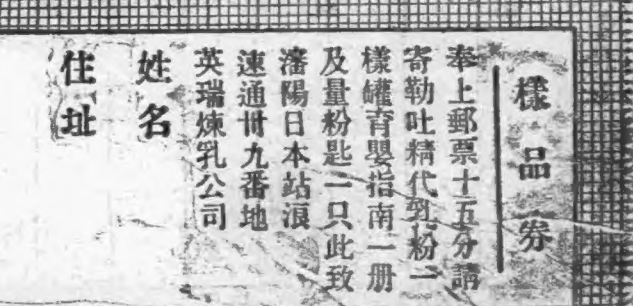 樣品券
奉上郵票十五分請
寄勒吐精代乳粉一
樣罐育嬰指南一册
及量粉匙一只此致
瀋陽日本站浪
速通卌九番地
英瑞煉乳公司
姓名
住址